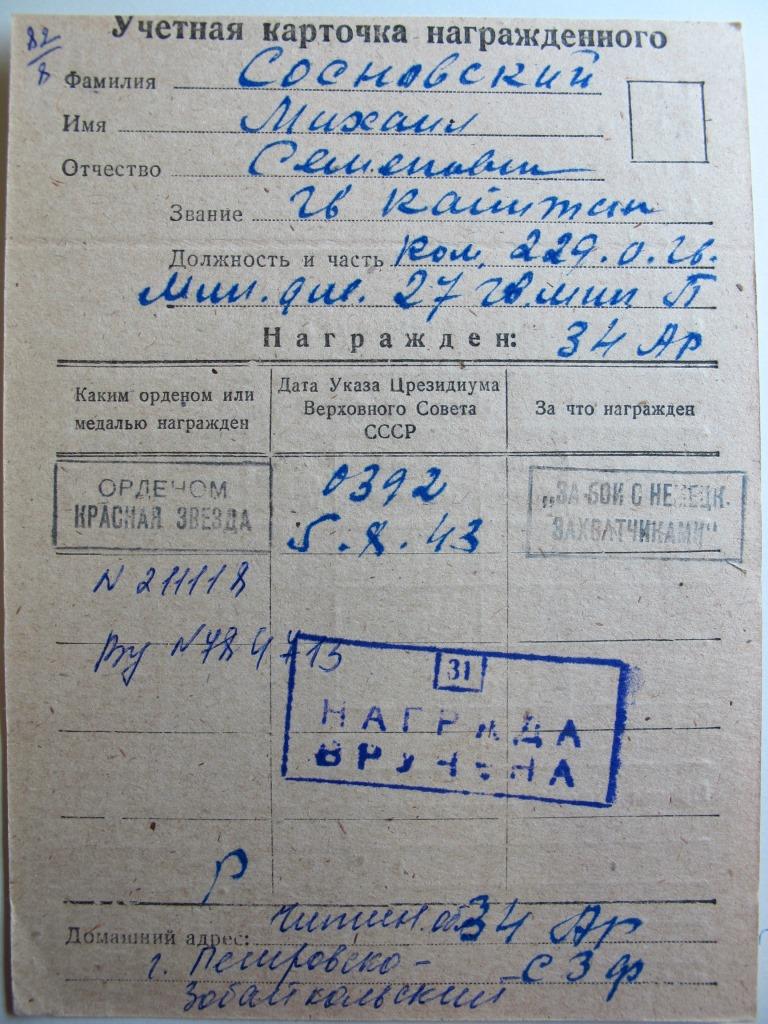 82/8
Учетная карточка награжденного
Фамилия Сосновский
Имя Михаил
Отчество Семенович
Звание гв капитан
Должность и часть Ком. 229.о.гв.
Мин. див. 27 гв. мин П
Награжден: 34 Ар
Каким орденом или медалью награжден
Дата Указа Президиума Верховного Совета СССР
За что награжден
ОРДЕНОМ КРАСНАЯ ЗВЕЗДА
0392
5.8.43
„ЗА БОИ С НЕМЕЦК. ЗАХВАТЧИКАМИ“
N 211118
Ву N 784713
31
НАГРАДА
ВРУЧЕНА
Р
Домашний адрес: Читин. об 34 Ар
г. Петровско- СЗФ
Забайкольский